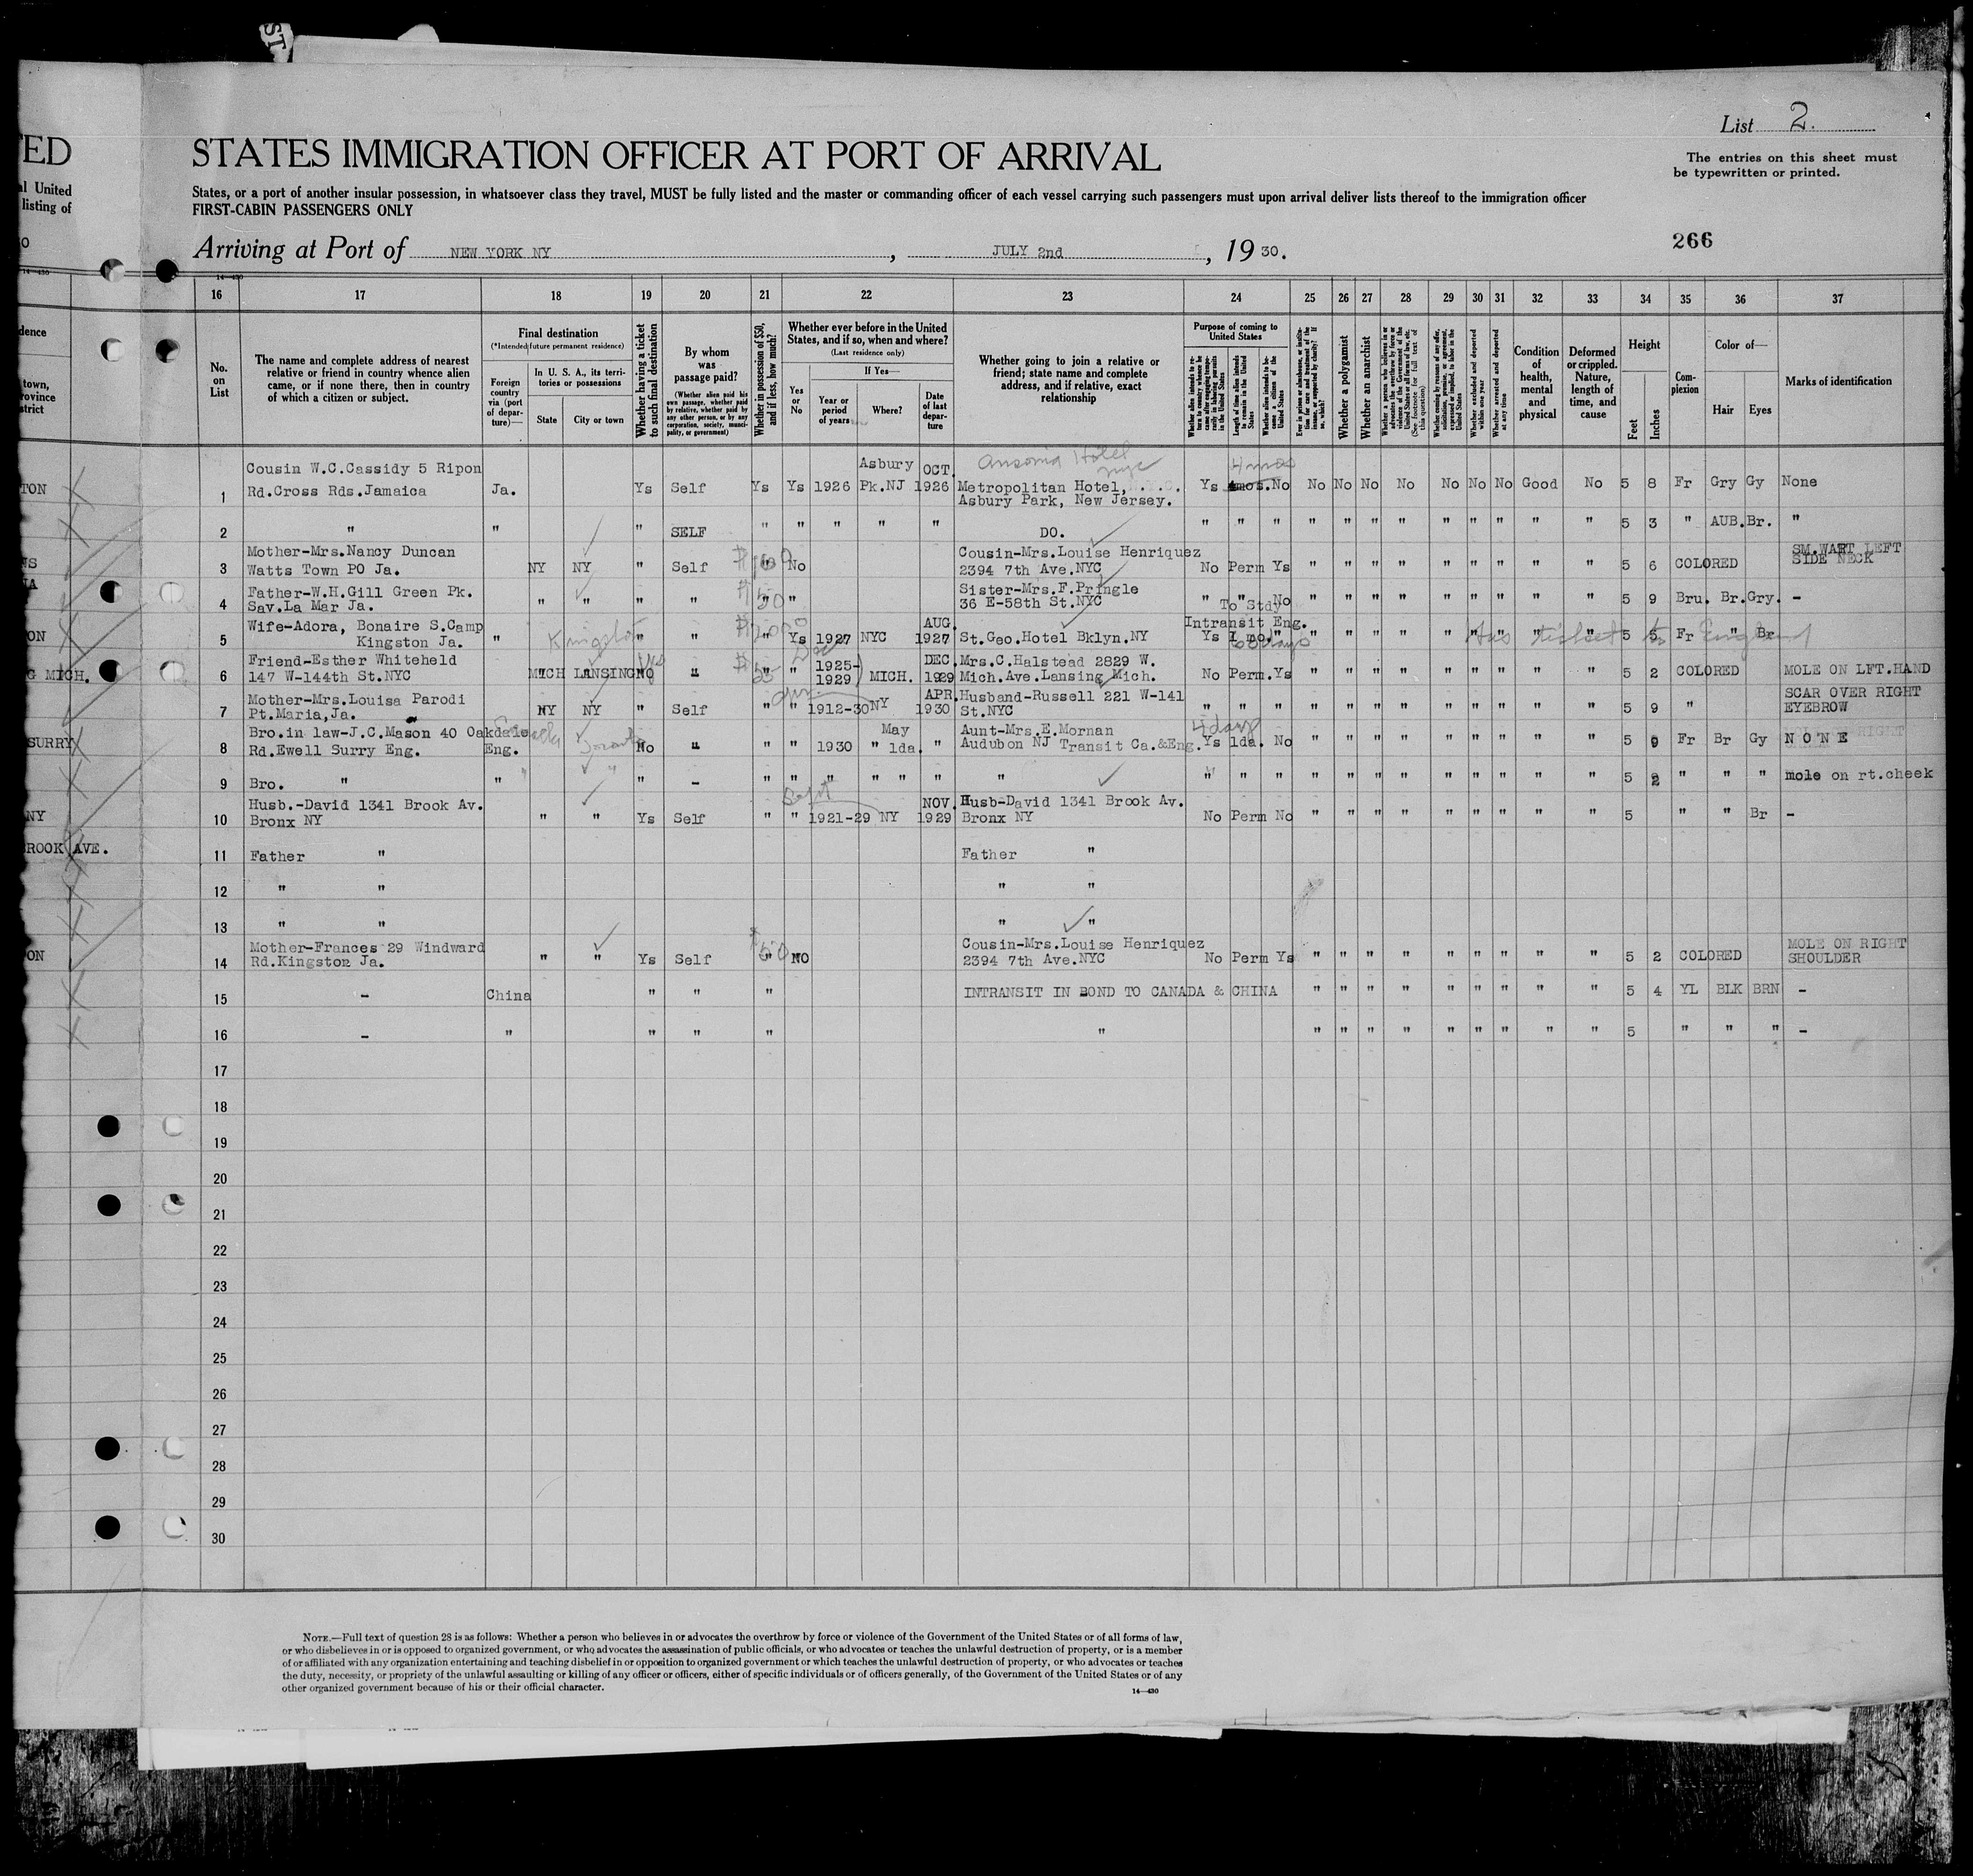 ST
List 2.
TED
STATES IMMIGRATION OFFICER AT PORT OF ARRIVAL
The entries on this sheet must
be typewritten or printed.
al United
listing of
States, or a port of another insular possession, in whatsoever class they travel, MUST be fully listed and the master or commanding officer of each vessel carrying such passengers must upon arrival deliver lists thereof to the immigration officer
FIRST-CABIN PASSENGERS ONLY
Arriving at Port of NEW YORK NY, JULY 2nd, 1930.
266
14—430
16 17 18 19 20 21 22 23 24 25 26 27 28 29 30 31 32 33 34 35 36 37
No. on List
The name and complete address of nearest relative or friend in country whence alien came, or if none there, then in country of which a citizen or subject.
Final destination
(*Intended future permanent residence)
Foreign country via (port of departure)—
In U. S. A., its territories or possessions
State
City or town
Whether having a ticket to such final destination
By whom was passage paid?
(Whether alien paid his own passage, whether paid by relative, whether paid by any other person, or by any corporation, society, municipality, or government)
Whether in possession of $50, and if less, how much?
Whether ever before in the United States, and if so, when and where?
(Last residence only)
Yes or No
If Yes—
Year or period of years
Where?
Date of last departure
Whether going to join a relative or friend; state name and complete address, and if relative, exact relationship
Purpose of coming to United States
Length of time alien intends to remain in the United States
Whether alien intends to become citizen of the United States
Whether a polygamist
Whether an anarchist
(See footnote for full text of this question)
Whether excluded and deported within one year
Whether arrested and deported at any time
Condition of health, mental and physical
Deformed or crippled. Nature, length of time, and cause
Height
Feet
Inches
Complexion
Color of—
Hair
Eyes
Marks of identification
Cousin W.C.Cassidy 5 Ripon Asbury OCT. Ansonia Hotel nyc 4 mos
TON 1 Rd.Cross Rds.Jamaica Ja. Ys Self Ys Ys 1926 Pk.NJ 1926 Metropolitan Hotel, Ys No No No No No No No No Good No 5 8 Fr Gry Gy None
Asbury Park, New Jersey.
2 " " " SELF " " " " " DO. " " " " " " " " " " " " 5 3 " AUB. Br. "
Mother-Mrs.Nancy Duncan Cousin-Mrs.Louise Henriquez SM.WART LEFT
3 Watts Town PO Ja. NY NY " Self " No 2394 7th Ave.NYC No Perm Ys " " " " " " " " " 5 6 COLORED SIDE NECK
Father-W.H.Gill Green Pk. Sister-Mrs.F.Pringle
4 Sav.La Mar Ja. " " " " $50 " 36 E-58th St.NYC " " No " " " " " " " " " 5 9 Bru. Br. Gry. -
To Stdy
Wife-Adora, Bonaire S.Camp AUG. Intransit Eng.
ON 5 Kingston Ja. " Kingston " " " Ys 1927 NYC 1927 St.Geo.Hotel Bklyn.NY Ys 1 mo. " 60 days " " " " Has ticket to England 5 5 Fr " Br
Friend-Esther Whiteheld 1925- DEC. Mrs.C.Halstead 2829 W.
G MICH. 6 147 W-144th St.NYC MICH LANSING NO " " 1929 MICH. 1929 Mich.Ave.Lansing Mich. No Perm. Ys " " " " " " " " " 5 2 COLORED MOLE ON LFT.HAND
Mother-Mrs.Louisa Parodi APR. Husband-Russell 221 W-141 SCAR OVER RIGHT
7 Pt.Maria,Ja. NY NY " Self " " 1912-30 NY 1930 St.NYC " " " " " " " " " " " " 5 9 " EYEBROW
Bro.in law-J.C.Mason 40 Oakdale May Aunt-Mrs.E.Mornan 4 days
SURRY 8 Rd.Ewell Surry Eng. Eng. Toronto No " " " 1930 " 1da. " Audubon NJ Transit Ca.&Eng. Ys 1da. No " " " " " " " " " 5 9 Fr Br Gy NONE
9 Bro. " " " - " " " " " " " " " " " " " " " " " " " " 5 2 " " " mole on rt.cheek
Husb.-David 1341 Brook Av. Sept NOV. Husb-David 1341 Brook Av.
NY 10 Bronx NY " " Ys Self " " 1921-29 NY 1929 Bronx NY No Perm No " " " " " " " " " 5 " " Br -
ROOK AVE. 11 Father " Father "
12 " " " "
13 " " " "
Mother-Frances 29 Windward Cousin-Mrs.Louise Henriquez MOLE ON RIGHT
ON 14 Rd.Kingston Ja. " " Ys Self $50 NO 2394 7th Ave.NYC No Perm Ys " " " " " " " " " 5 2 COLORED SHOULDER
15 - China " " " INTRANSIT IN BOND TO CANADA & CHINA " " " " " " " " " 5 4 YL BLK BRN -
16 - " " " " " " " " " " " " " " 5 " " " -
17
18
19
20
21
22
23
24
25
26
27
28
29
30
NOTE.—Full text of question 28 is as follows: Whether a person who believes in or advocates the overthrow by force or violence of the Government of the United States or of all forms of law,
or who disbelieves in or is opposed to organized government, or who advocates the assassination of public officials, or who advocates or teaches the unlawful destruction of property, or is a member
of or affiliated with any organization entertaining and teaching disbelief in or opposition to organized government or which teaches the unlawful destruction of property, or who advocates or teaches
the duty, necessity, or propriety of the unlawful assaulting or killing of any officer or officers, either of specific individuals or of officers generally, of the Government of the United States or of any
other organized government because of his or their official character.
14—430